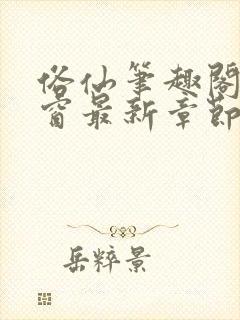 俗仙笔趣阁
窗最新章节
岳粹景